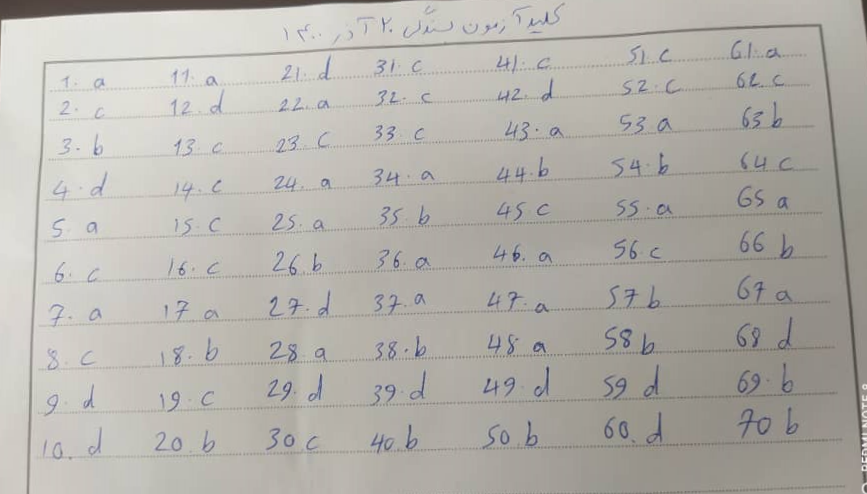 کلید آزمون بندگی ۲۰ آذر ۱۴۰۰
1. a 11. a 21. d 31. c 41. c 51. c 61. a
2. c 12. d 22. a 32. c 42. d 52. c 62. c
3. b 13. c 23. c 33. c 43. a 53 a 63 b
4. d 14. c 24. a 34. a 44. b 54. b 64 c
5. a 15. c 25. a 35. b 45 c 55. a 65 a
6. c 16. c 26. b 36. a 46. a 56. c 66 b
7. a 17 a 27. d 37. a 47. a 57 b 67 a
8. c 18. b 28 a 38. b 48 a 58 b 68 d
9. d 19. c 29. d 39. d 49. d 59 d 69. b
10. d 20 b 30 c 40. b 50 b 60. d 70 b